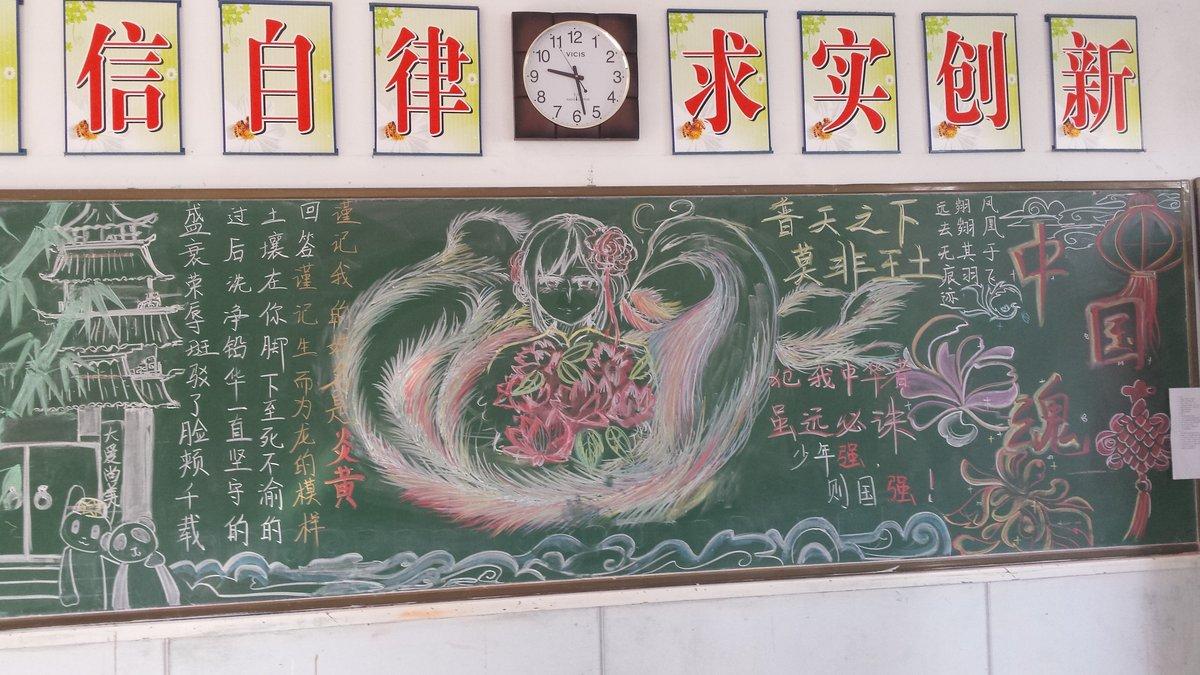 信 自 律 求 实 创 新
VICIS
大爱尚美
盛衰荣辱斑驳了脸颊千载
过后洗净铅华一直坚守的
土壤在你脚下至死不渝的
回答谨记生而为龙的模样
谨记我的 是炎黄
普天之下
莫非王土
犯我中华者
虽远必诛
少年强，
则国强！
凤凰于飞
翙翙其羽
远去无痕迹
中国
魂